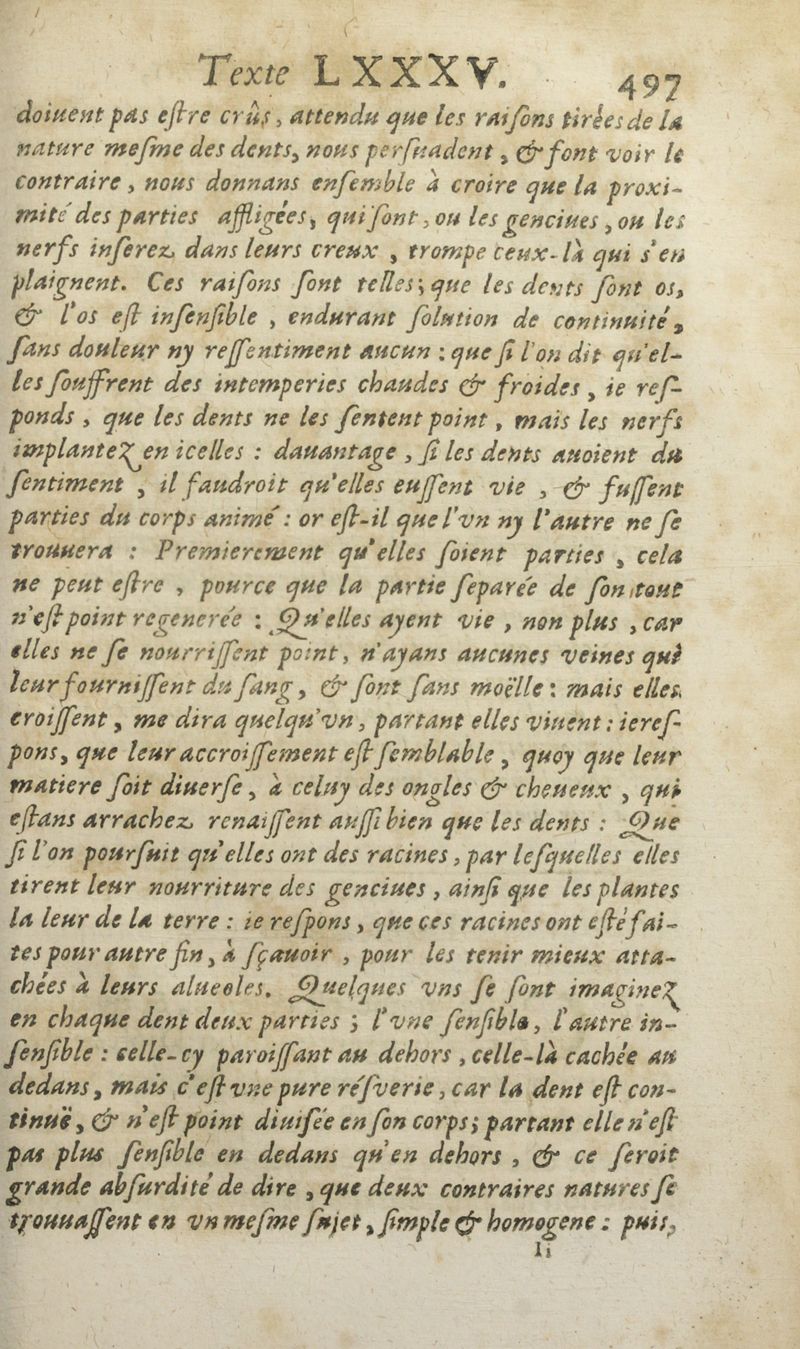 Texte LXXXV. 497
doiuent pas eſtre crûs, attendu que les raiſons tirées de la
nature meſme des dents, nous perſuadent, & font voir le
contraire, nous donnans enſemble à croire que la proxi-
mité des parties affligées, qui ſont, ou les genciues, ou les
nerfs inſerez dans leurs creux, trompe ceux-là qui s'en
plaignent. Ces raiſons ſont telles; que les dents ſont os,
& l'os eſt inſenſible, endurant ſolution de continuité,
ſans douleur ny reſſentiment aucun : que ſi l'on dit qu'el-
les ſouffrent des intemperies chaudes & froides, ie reſ-
ponds, que les dents ne les ſentent point, mais les nerfs
implantez en icelles : dauantage, ſi les dents auoient du
ſentiment, il faudroit qu'elles euſſent vie, & fuſſent
parties du corps animé : or eſt-il que l'vn ny l'autre ne ſe
trouuera : Premierement qu'elles ſoient parties, cela
ne peut eſtre, pource que la partie ſeparée de ſon tout
n'eſt point regenerée : Qu'elles ayent vie, non plus, car
elles ne ſe nourriſſent point, n'ayans aucunes veines qui
leur fourniſſent du ſang, & ſont ſans moëlle : mais elles
croiſſent, me dira quelqu'vn, partant elles viuent : ie reſ-
pons, que leur accroiſſement eſt ſemblable, quoy que leur
matiere ſoit diuerſe, à celuy des ongles & cheueux, qui
eſtans arrachez renaiſſent auſſi bien que les dents : Que
ſi l'on pourſuit qu'elles ont des racines, par leſquelles elles
tirent leur nourriture des genciues, ainſi que les plantes
la leur de la terre : ie reſpons, que ces racines ont eſté fai-
tes pour autre fin, à ſçauoir, pour les tenir mieux atta-
chées à leurs alueoles. Quelques vns ſe ſont imaginez
en chaque dent deux parties ; l'vne ſenſible, l'autre in-
ſenſible : celle-cy paroiſſant au dehors, celle-là cachée au
dedans, mais c'eſt vne pure réſverie, car la dent eſt con-
tinuë, & n'eſt point diuiſée en ſon corps; partant elle n'eſt
pas plus ſenſible en dedans qu'en dehors, & ce ſeroit
grande abſurdité de dire, que deux contraires natures ſe
trouuaſſent en vn meſme ſujet, ſimple & homogene : puis,
Ii